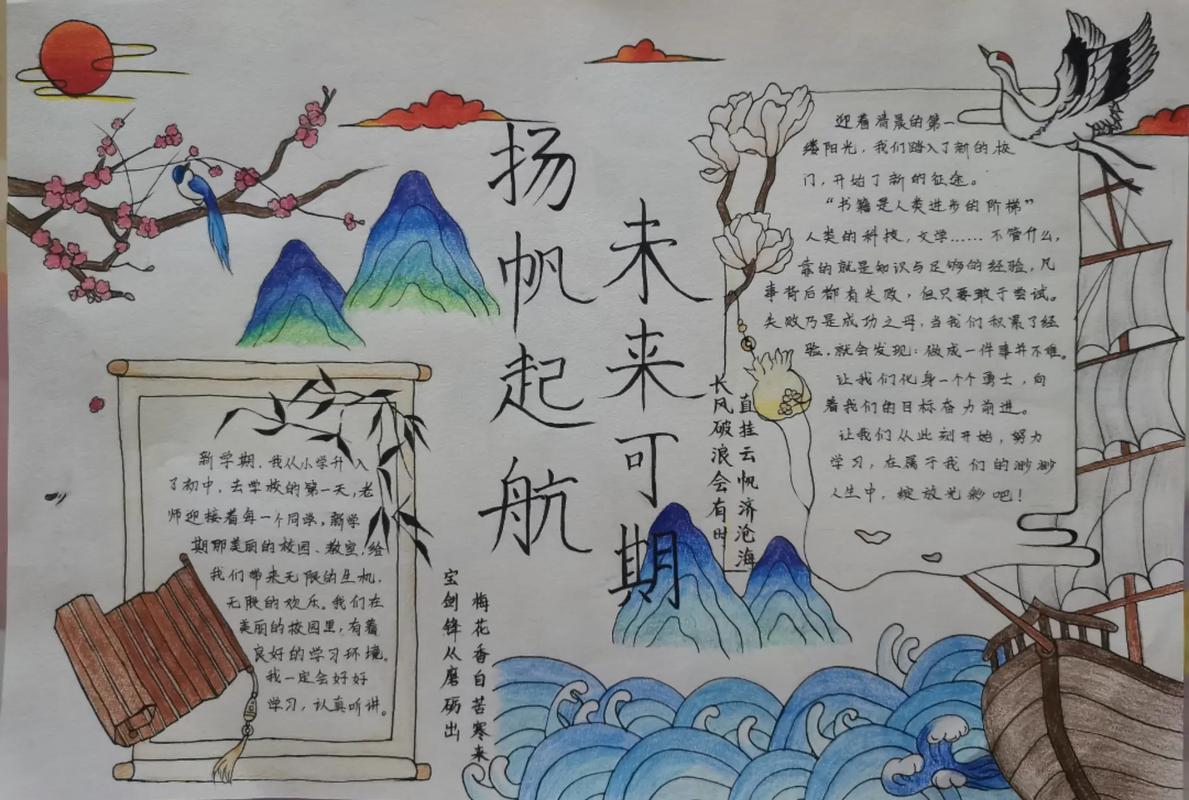 扬帆起航
未来可期
新学期，我从小学升入
了初中，去学校的第一天，老
师迎接着每一个同学。新学
期那美丽的校园、教室，给
我们带来无限的生机，
无限的欢乐。我们在
美丽的校园里，有着
良好的学习环境。
我一定会好好
学习，认真听讲。
宝剑锋从磨砺出
梅花香自苦寒来
长风破浪会有时
直挂云帆济沧海
迎着清晨的第一
缕阳光，我们踏入了新的校
门，开始了新的征途。
“书籍是人类进步的阶梯”
人类的科技，文学……不管什么，
靠的就是知识与足够的经验，凡
事背后都有失败，但只要敢于尝试。
失败乃是成功之母，当我们积累了经
验，就会发现：做成一件事并不难。
让我们化身一个个勇士，向
着我们的目标奋力前进。
让我们从此刻开始，努力
学习，在属于我们的渺渺
人生中，绽放光彩吧！